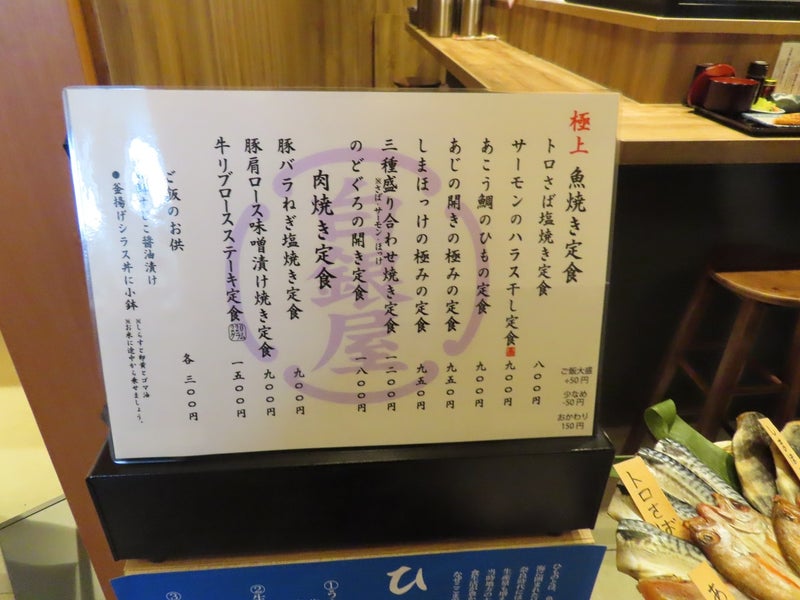 極上 魚焼き定食
トロさば塩焼き定食 八〇〇円
サーモンのハラス干し定食 九〇〇円
あこう鯛のひもの定食 九〇〇円
あじの開きの極みの定食 九五〇円
しまほっけの極みの定食 九五〇円
三種盛り合わせ焼き定食 一二〇〇円
※さば・サーモン・ほっけ
のどぐろの開き定食 一八〇〇円
ご飯大盛
+50円
少なめ
-50円
おかわり
150円
肉焼き定食
豚バラねぎ塩焼き定食 九〇〇円
豚肩ロース味噌漬け焼き定食 九〇〇円
牛リブロースステーキ定食 220グラム 一五〇〇円
ご飯のお供 各 三〇〇円
すじこ醤油漬け
●釜揚げシラス丼に小鉢
※しらすと卵黄とゴマ油
※お米に途中から乗せましょう。
銀屋
トロさば
あ
ひ
ひものは、魚
海に囲まれた
奈良時代には
生産量も増え
当時地方のい
食生活に
①う
②生
③